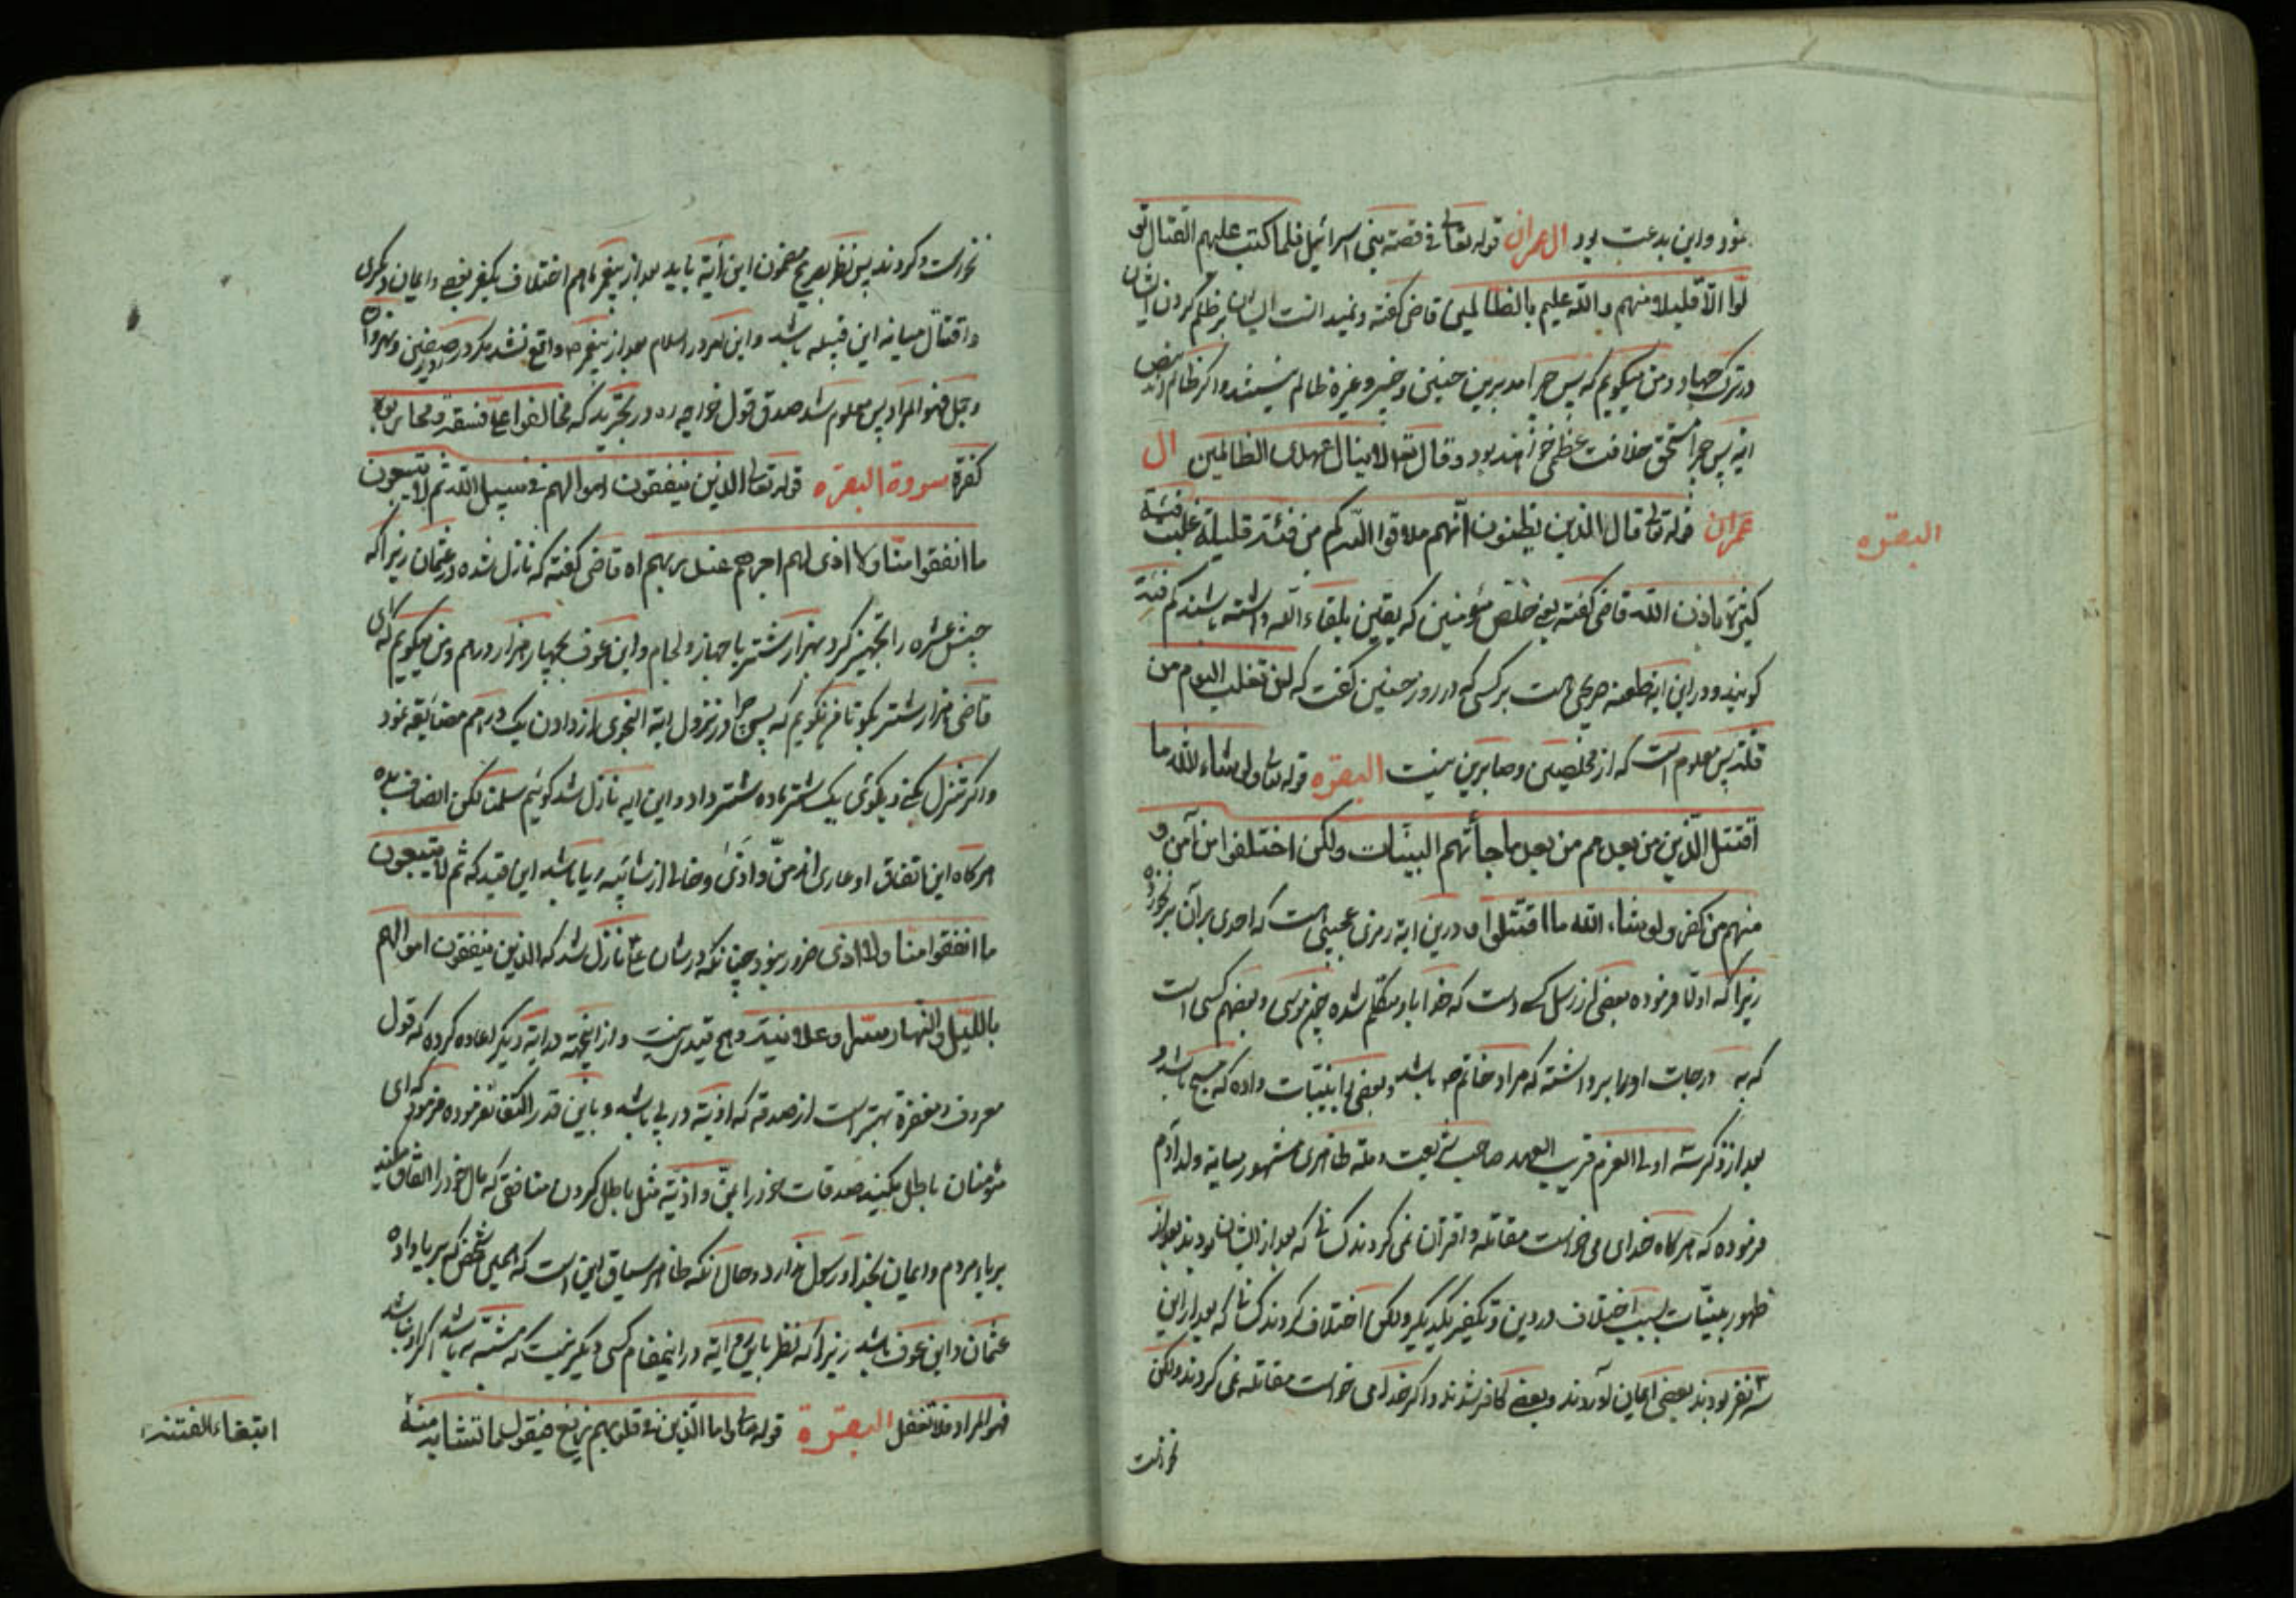 نمود و این بدعت بود ال عمران قوله تعالی فی قصة بنی اسرائیل فلما کتب علیهم القتال تو
لوا الّا قلیلا منهم والله علیم بالظالمین قاضی گفته و نمیدانست ایشان بر ظلم کردن ایشان
در ترک جهاد و من میگویم که پس چرا مدبرین حنین و خیبر و غیره ظالم نیستند و اگر ظالم اند بنص
ایه پس چرا مستحق خلافت عظمی خواهند بود و قال تعالی لا ینال عهدی الظالمین ال
عمران قوله تعالی قال الذین یظنون انهم ملاقوا الله کم من فئة قلیلة غلبت فئة
البقره
کثیرة باذن الله قاضی گفته یعنی خلص مؤمنین که یقین بلقاء الله داشته باشند کم فئة
گویند و در این ایه طعنه صریحی است بر کسی که در روز حنین گفت که لن تغلب الیوم من
قلة پس معلوم است که از مخلصین و صابرین نیست البقره قوله تعالی ولو شاء الله ما
اقتتل الّذین من بعدهم من بعد ما جائتهم البینات ولکن اختلفوا من آمن و
منهم من کفر ولو شاء الله ما اقتتلوا درین ایه رمزی عجیبی است که احدی بر آن بر نخورده
زیرا که اولا فرموده بعضی از رسل کسی است که خدا با او متکلم شده چون موسی و بعضهم کسی است
که به درجات او را برداشته که مراد خاتم ص باشد و بعضی را بینات داده که مسیح باشد و
بعد از ذکر سه اولی العزم قریب العهد صاحب شریعت و ملة ظاهری مشهور میانه ولد آدم
فرموده که هرگاه خدای می خواست مقاتله و اقران نمی کردند کسانی که بعد از ایشان بودند بعد از
ظهور بینات بسبب اختلاف در دین و تکفیر یکدیگر ولکن اختلاف کردند کسانی که بعد از این
سه نفر بودند بعضی ایمان آوردند و بعضی کافر شدند و اگر خدا می خواست مقاتله نمی کردند ولکن
نخواست
نخواست و کردند پس نظر بصریح مضمون این آیة باید بعد از پیغمبر ما هم اختلاف بکفر بعضی و ایمان دیگری
و اقتتال میانه این قبیله باشد و این امر در اسلام بعد از پیغمبر ص واقع نشد مگر در صفین و نهروان
و جمل فهو المراد پس معلوم شد صدق قول خواجه ره در تجرید که مخالفوا علی فسقة و محاربوه
کفرة سورة البقره قوله تعالی الذین ینفقون اموالهم فی سبیل الله ثم لا یتبعون
ما انفقوا منّا ولا اذی لهم اجرهم عند ربهم اه قاضی گفته که نازل شده در عثمان زیرا که
جیش عسره را تجهیز کرد بهزار شتر با جهاز و لجام و ابن عوف بچهار هزار درهم و من میگویم که ای
قاضی هزار شتر بگو تا من بگویم که پس چرا در نزول ایة النجوی از دادن یک درهم مضائقه نمود
و اگر تنزل کنی و بگوئی یک شتر ماده شتر داد و این ایه نازل شد گوئیم سلمنا لکن انصاف بده
هرگاه این انفاق او عاری از منّ و اذی و خالی از شائبه ریا باشد این قید که ثم لا یتبعون
ما انفقوا منا ولا اذی ضرور نبود چنانکه در شان علی نازل شد که الذین ینفقون اموالهم
باللیل والنهار سرا و علانیة و هیچ قیدی نیست و از اینجهة در ایة دیگر اعاده کرده که قول
معروف و مغفرة بهتر است از صدقه که اذیة در پی باشد و باین قدر اکتفا نفرموده فرموده که ای
مؤمنان باطل مکنید صدقات خود را بمنّ و اذیة مثل باطل کردن منافق که مال خود را انفاق میکند
بریاء مردم و ایمان بخدا و رسول ندارد و حال آنکه ظاهر سیاق این است که همین شخص که بریا داده
عثمان و ابن عوف باشد زیرا که نظر باین ایة در اینمقام کسی دیگر نیست که مشبه به باشد اگر او نباشد
فهو المراد فلا تغفل البقرة قوله تعالی و اما الذین فی قلوبهم زیغ فیتبعون ما تشابه منه
ابتغاء الفتنة